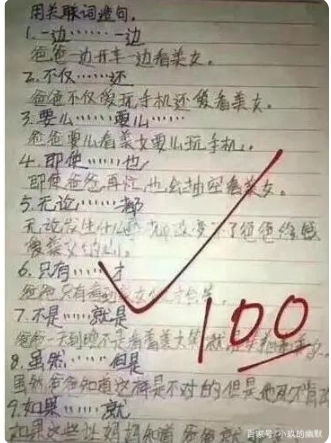 用关联词造句。
1.一边……一边
爸爸一边开车一边看美女。
2.不仅……还
爸爸不仅假玩手机还假看美女。
3.要么……要么
爸爸要么看美女要么玩手机。
4.即使……也
即使爸爸再忙,也会抽空看美女。
5.无论……都
无论发生什么都改变不了爸爸
爱美女的心。
6.只有……才
爸爸只有看到美女
7.不是……就是
爸爸一天到晚不是看着美女笑就是
8.虽然……但是
虽然爸爸知道这样是不对的,但是他
9.如果……就
如果这些让妈妈知道,爸爸
100
百家号/小妖的幽默